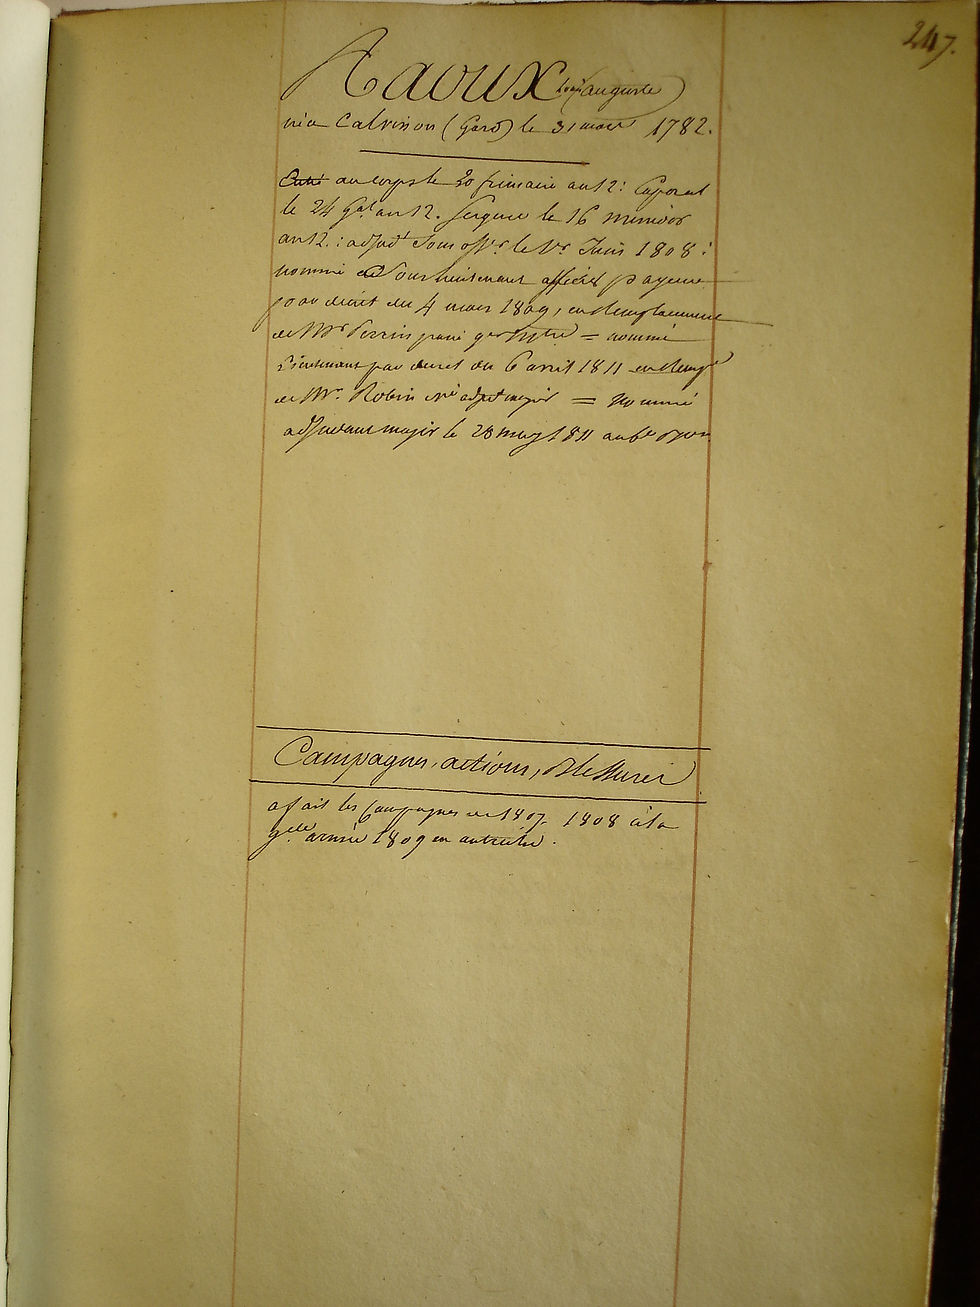 247.
Raoux (Louis auguste)
né a Calvisson (Gard) le 31 mars 1782.
Entré au corps le 20 frimaire an 12: Caporal
le 24 g.al an 12. Sergent le 16 messidor
an 12.: adjud.t Sous off.er le 1.er Juin 1808:
nommé Souslieutenant officier payeur
par décret du 4 mars 1809, en Remplacement
de M.r Perrin passé = nommé
Lieutenant par decret du 6 avril 1811 en Remp.t
de M.r Robin n.é adjud.t major = Nommé
adjudant major le 28 may 1811 au 6.e
Campagnes, actions, Blessures
a fait les Campagnes de 1807. 1808 à la
g.de armée 1809 en autriche.